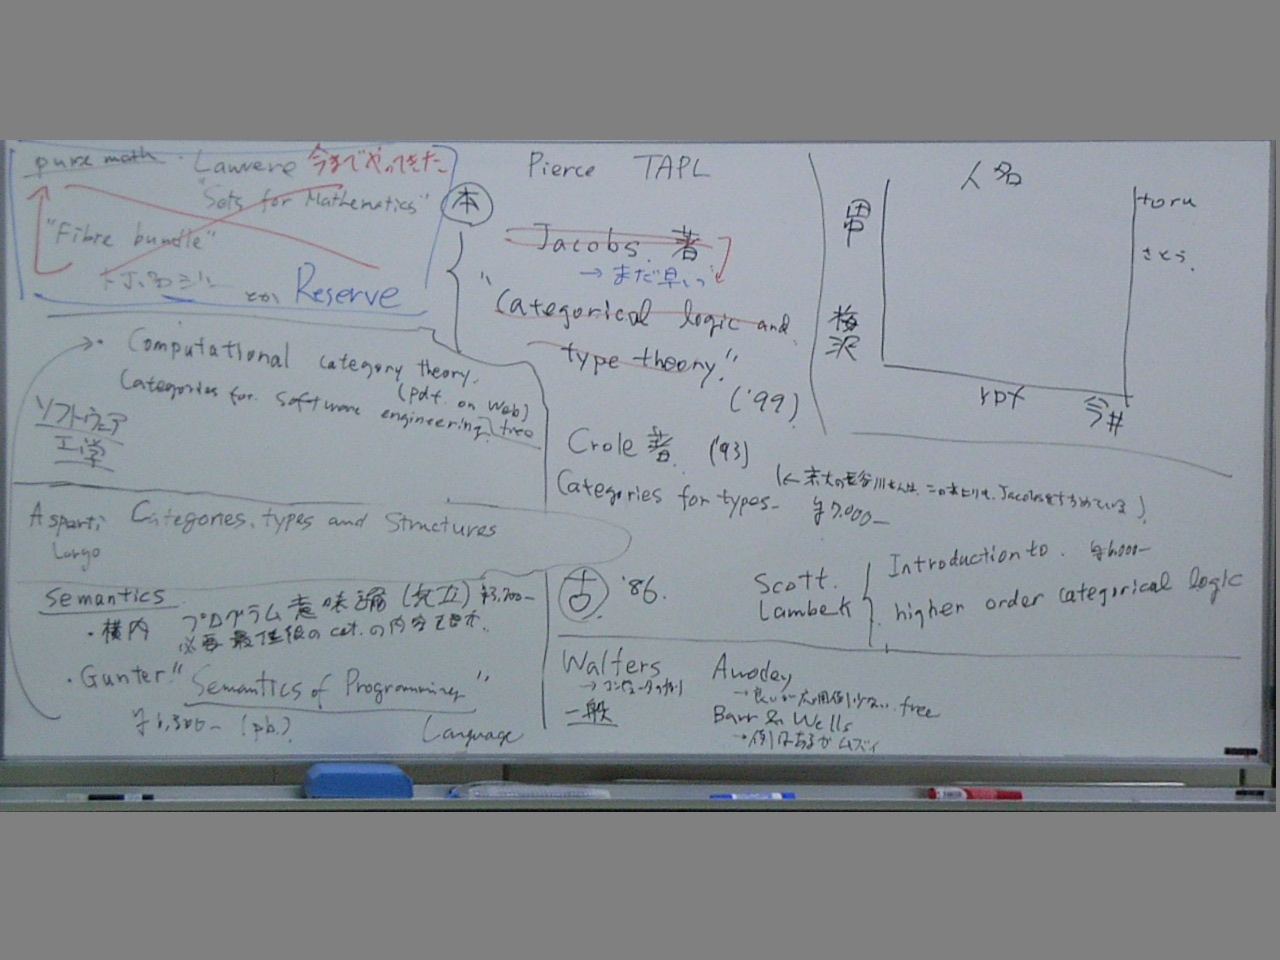 pure math ・ Lawvere 今までやってきた
"Sets for Mathematics"
"Fibre bundle"
トポロジー とか Reserve
・ Computational category theory.
(pdf. on Web)
Categories for Software engineering free
ソフトウェア
工学
Asperti Categories, types and Structures
Longo
Semantics
・横内 プログラム意味論 (共立) ¥3,700-
必要最低線の cat. の内容
・Gunter "Semantics of Programming"
Language
(pb.)
本
Pierce TAPL
Jacobs. 著
→ まだ早いっ
"Categorical logic and
type theory."
('99)
Crole 著 ('93)
Categories for types-
¥7,000-
古 '86.
Scott.
Lambek
Introduction to. ¥6,000-
higher order categorical logic
Walters
一般
Awodey
free
Barr & Wells
→ 例はあるがムズイ
人名
田中
梅沢
toru
さとう.
rpf
今井